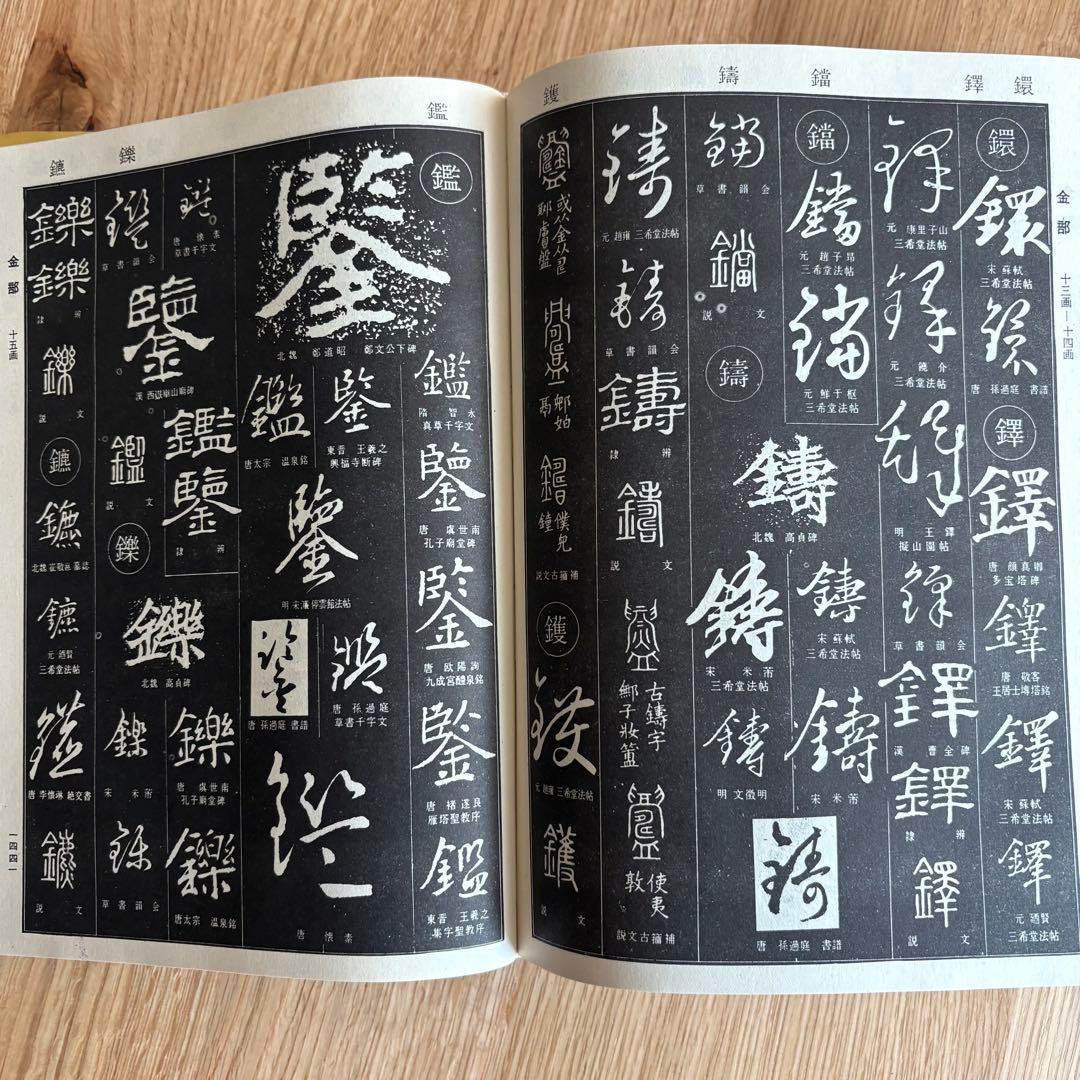 鐶
鐸
鐺
鑄
鑊
金部
十三画—十四画
鐶
鐶
宋 蘇軾
三希堂法帖
鐶
唐 孫過庭 書譜
鐸
鐸
唐 顔真卿
多宝塔碑
鐸
唐 敬客
王居士塼塔銘
鐸
宋 蘇軾
三希堂法帖
鐸
元 迺賢
三希堂法帖
鐸
元 康里子山
三希堂法帖
鐸
元 饒介
三希堂法帖
鐸
明 王鐸
擬山園帖
鐸
草書韻会
鐸
漢 曹全碑
鐸
隷辨
鐸
説文
鐺
鐺
元 趙子昂
三希堂法帖
鐺
元 鮮于枢
三希堂法帖
鐺
草書韻会
鐺
説文
鑄
鑄
北魏 高貞碑
鑄
宋 蘇軾
鑄
宋 米芾
三希堂法帖
鑄
宋 米芾
鑄
明 文徴明
鑄
唐 孫過庭 書譜
鑄
元 趙雍 三希堂法帖
鑄
草書韻会
鑄
隷辨
鑄
説文
古鑄字
鄦子妝簠
使夷敦
説文古籀補
或从金从皿
邾如鬲
僕兒鐘
説文古籀補
鑊
鑊
元 趙雍 三希堂法帖
鑊
説文
鑑
鑠
鑣
金部
十五画
一四四一
鑑
鑒
北魏 鄭道昭 鄭文公下碑
鑑
隋 智永
真草千字文
鑒
唐 虞世南
孔子廟堂碑
鑒
唐 欧陽詢
九成宮醴泉銘
鑒
唐 褚遂良
雁塔聖教序
鑑
東晋 王羲之
集字聖教序
鑒
東晋 王羲之
興福寺断碑
鑑
唐太宗 温泉銘
鑒
明 宋濂 停雲館法帖
鑑
唐 孫過庭
草書千字文
鑒
唐 孫過庭 書譜
鑑
唐 懐素
鑑
唐 懐素
草書千字文
鑑
草書韻会
鑒
漢 西嶽崋山廟碑
鑑
鑒
隷辨
鑑
説文
鑠
鑠
北魏 高貞碑
鑠
唐 虞世南
孔子廟堂碑
鑠
唐太宗 温泉銘
鑠
宋 米芾
鑠
草書韻会
鑠
鑠
隷辨
鑠
説文
鑣
鑣
北魏 崔敬邕墓誌
鑣
元 迺賢
三希堂法帖
鑣
唐 李懐琳 絶交書
鑣
説文